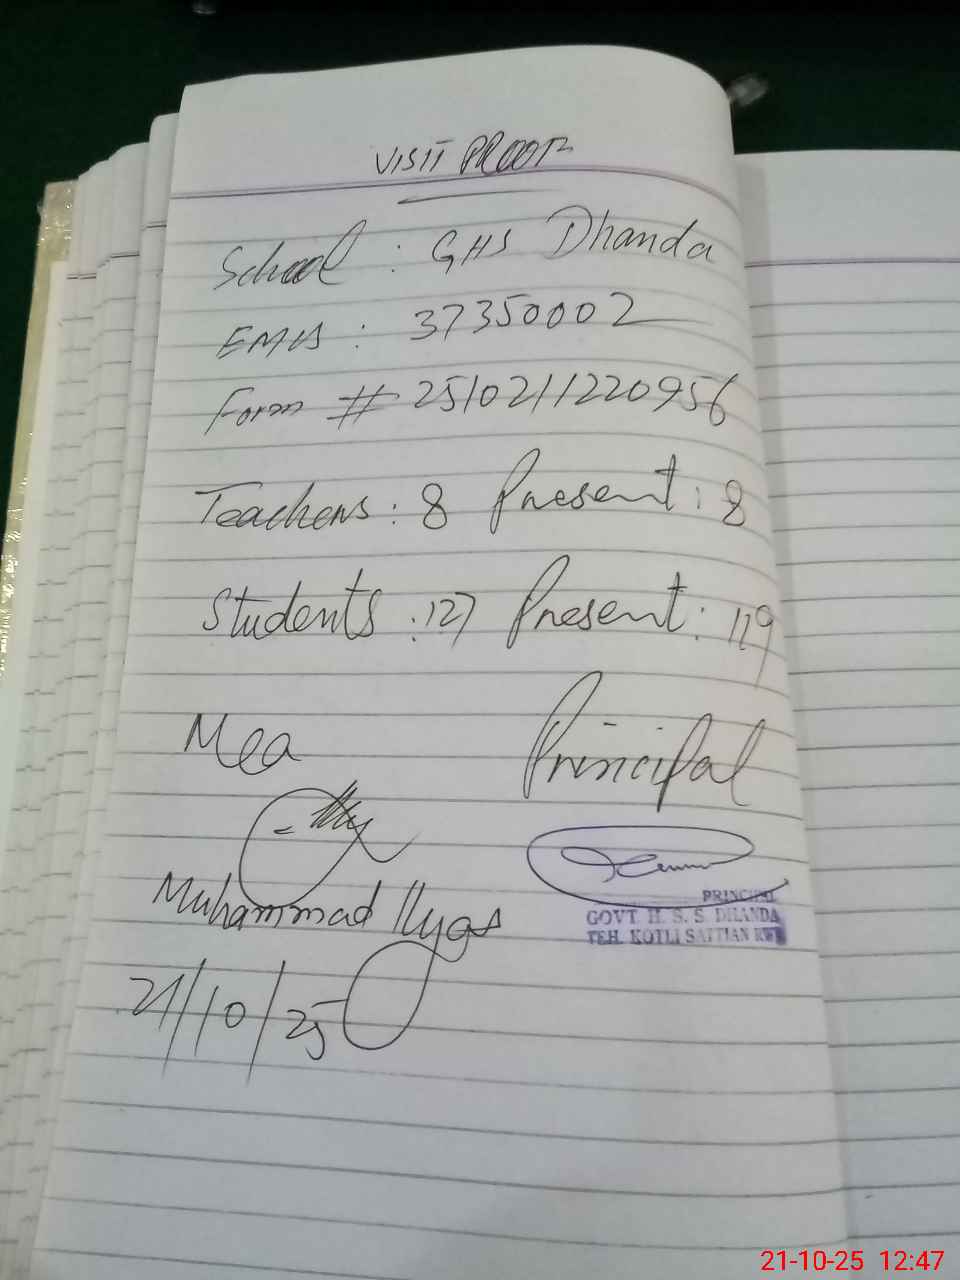 VISIT PROOF
School : GHS Dhanda
EMIS : 37350002
Form # 2510211220956
Teachers : 8 Present : 8
Students : 127 Present : 119
Mea Principal
Muhammad Ilyas
21/10/25
PRINCIPAL
GOVT. H. S. S. DHANDA
TEH. KOTLI SATTIAN RWP
21-10-25 12:47